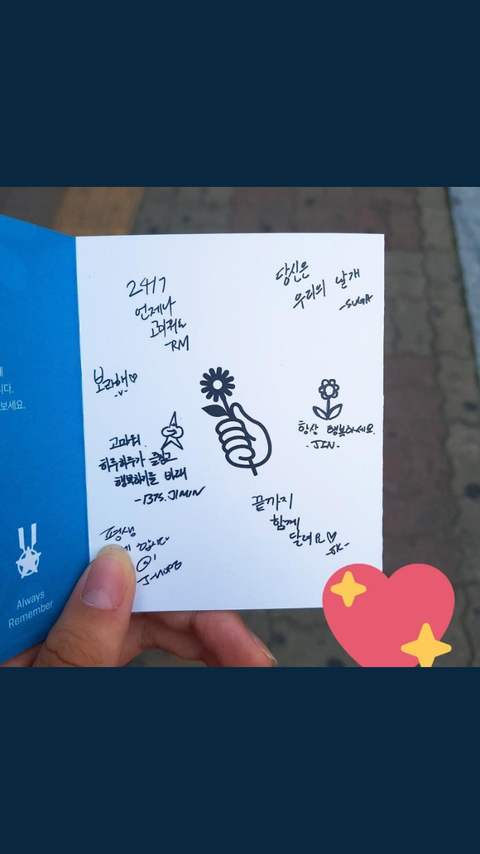 니다.
보세요.
Always
Remember
24/7
언제나
고마워요
-RM
당신은
우리의 날개
-SUGA
보라해♡
-V-
고마워.
하루하루가 즐겁고
행복하기를 바래
-1375.JIMIN
항상 행복하세요.
-JIN-
끝까지
함께
달려요♡
-JK-
평생
합니다
J-HOPE